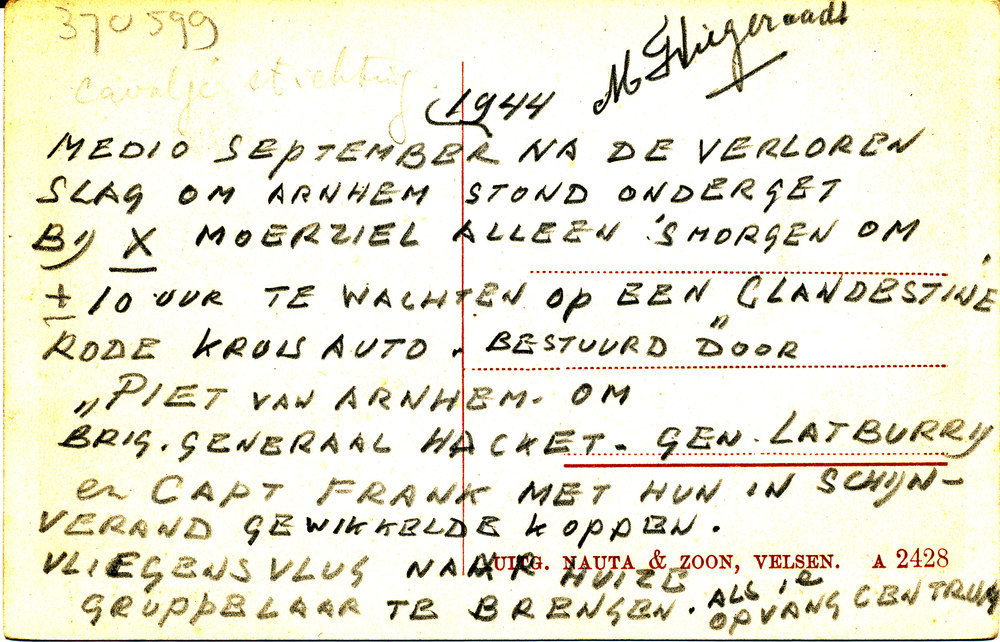 370599
M Fliegeraadt
stichting
1944
MEDIO SEPTEMBER NA DE VERLOREN
SLAG OM ARNHEM STOND ONDERGET
Bij X MOERZIEL ALLEEN 'S MORGEN OM
± 10 UUR TE WACHTEN OP EEN CLANDESTINE
RODE KRUIS AUTO. BESTUURD DOOR
„PIET VAN ARNHEM." OM
BRIG. GENERAAL HACKET - GEN. LATBURRY
en CAPT FRANK MET HUN IN SCHIJN-
VERAND GEWIKKELDE KOPPEN.
VLIEGENSVLUG NAAR HUIZE
GRUPPELAAR TE BRENGEN. ALS 1e OPVANG CENTRUM
UITG. NAUTA & ZOON, VELSEN. A 2428